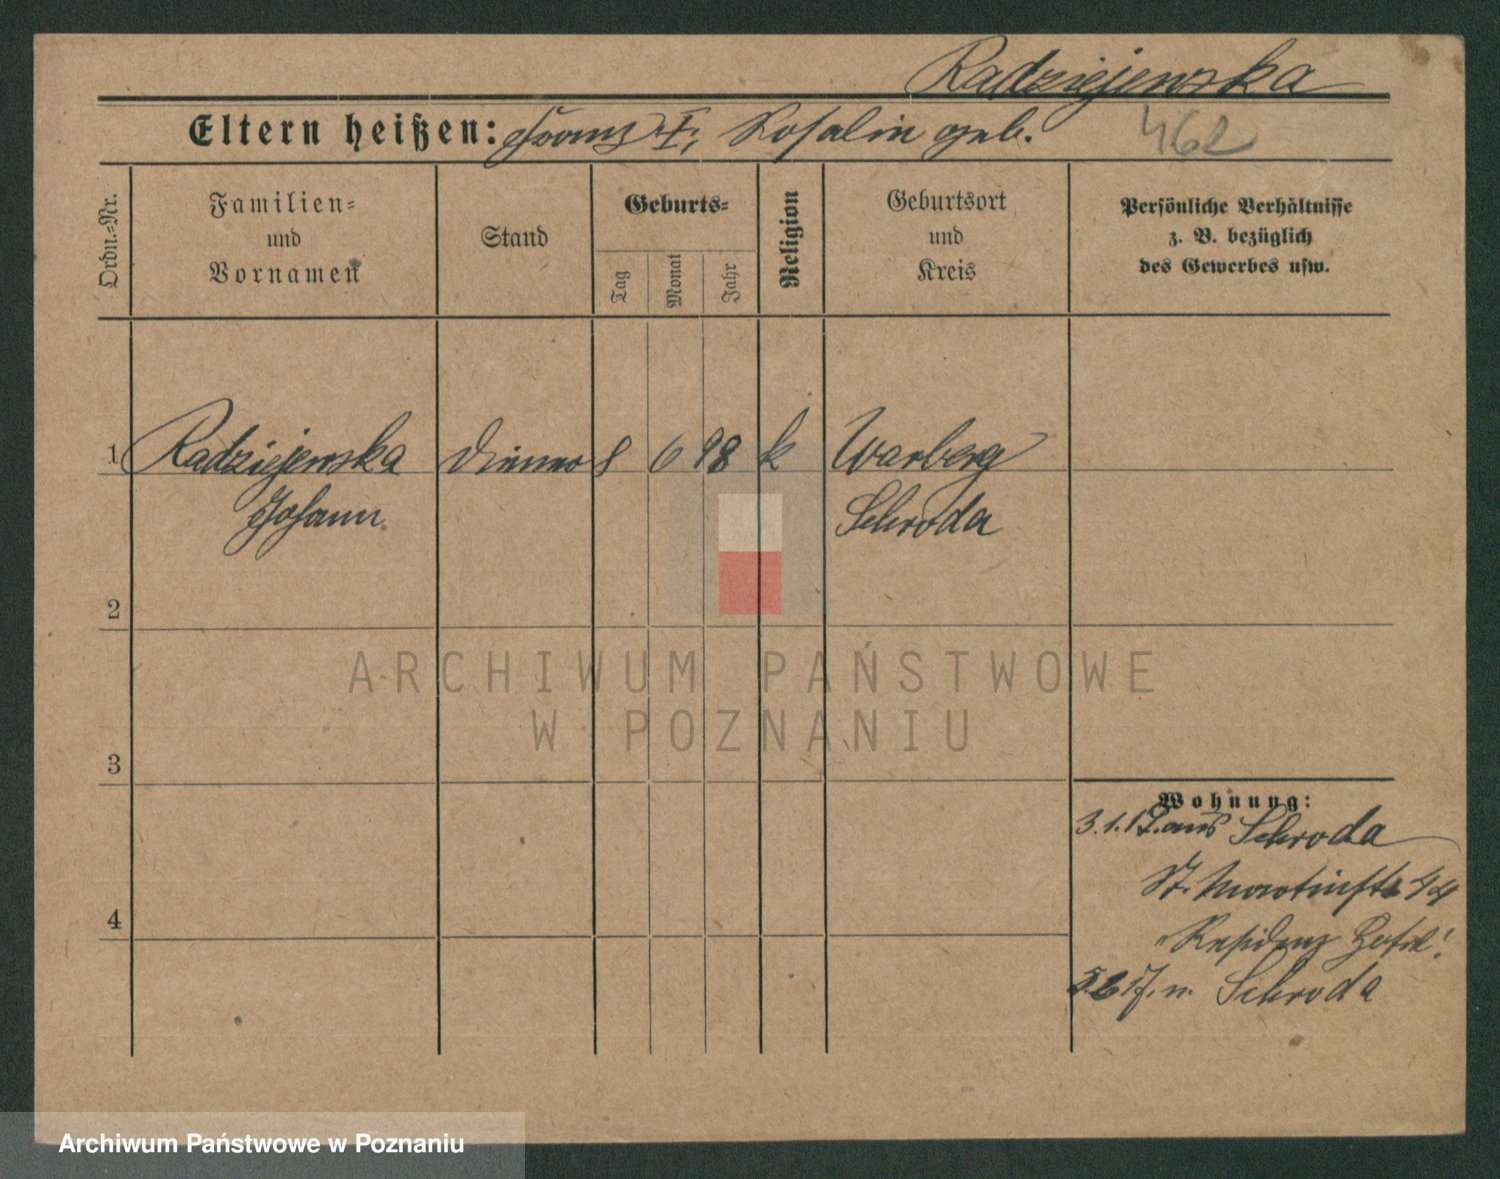 Radziejewska
Eltern heißen: Franz †, Rosalin geb. 462
Ordn.-Nr.
Familien-
und
Vornamen
Stand
Geburts-
Tag
Monat
Jahr
Religion
Geburtsort
und
Kreis
Persönliche Verhältnisse
z. B. bezüglich
des Gewerbes usw.
1 Radziejewska Diener 8 6 98 k Warberg
Johann Schroda
2
3
4
Wohnung:
3.1.17. aus Schroda
St. Martinstr 44
"Residenz Hotel"
5.2.17. n. Schroda
ARCHIWUM PAŃSTWOWE
W POZNANIU
Archiwum Państwowe w Poznaniu